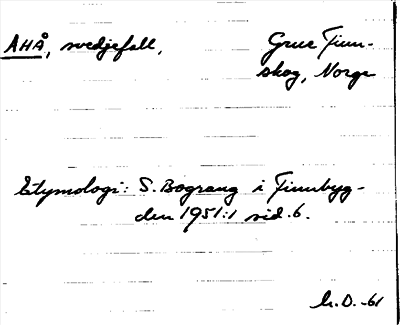 AHÅ, svedjefall,
Grue Finn-
skog, Norge
Etymologi: S. Bograng i Finnbyg-
den 1951:1 sid. 6.
h.D. -61